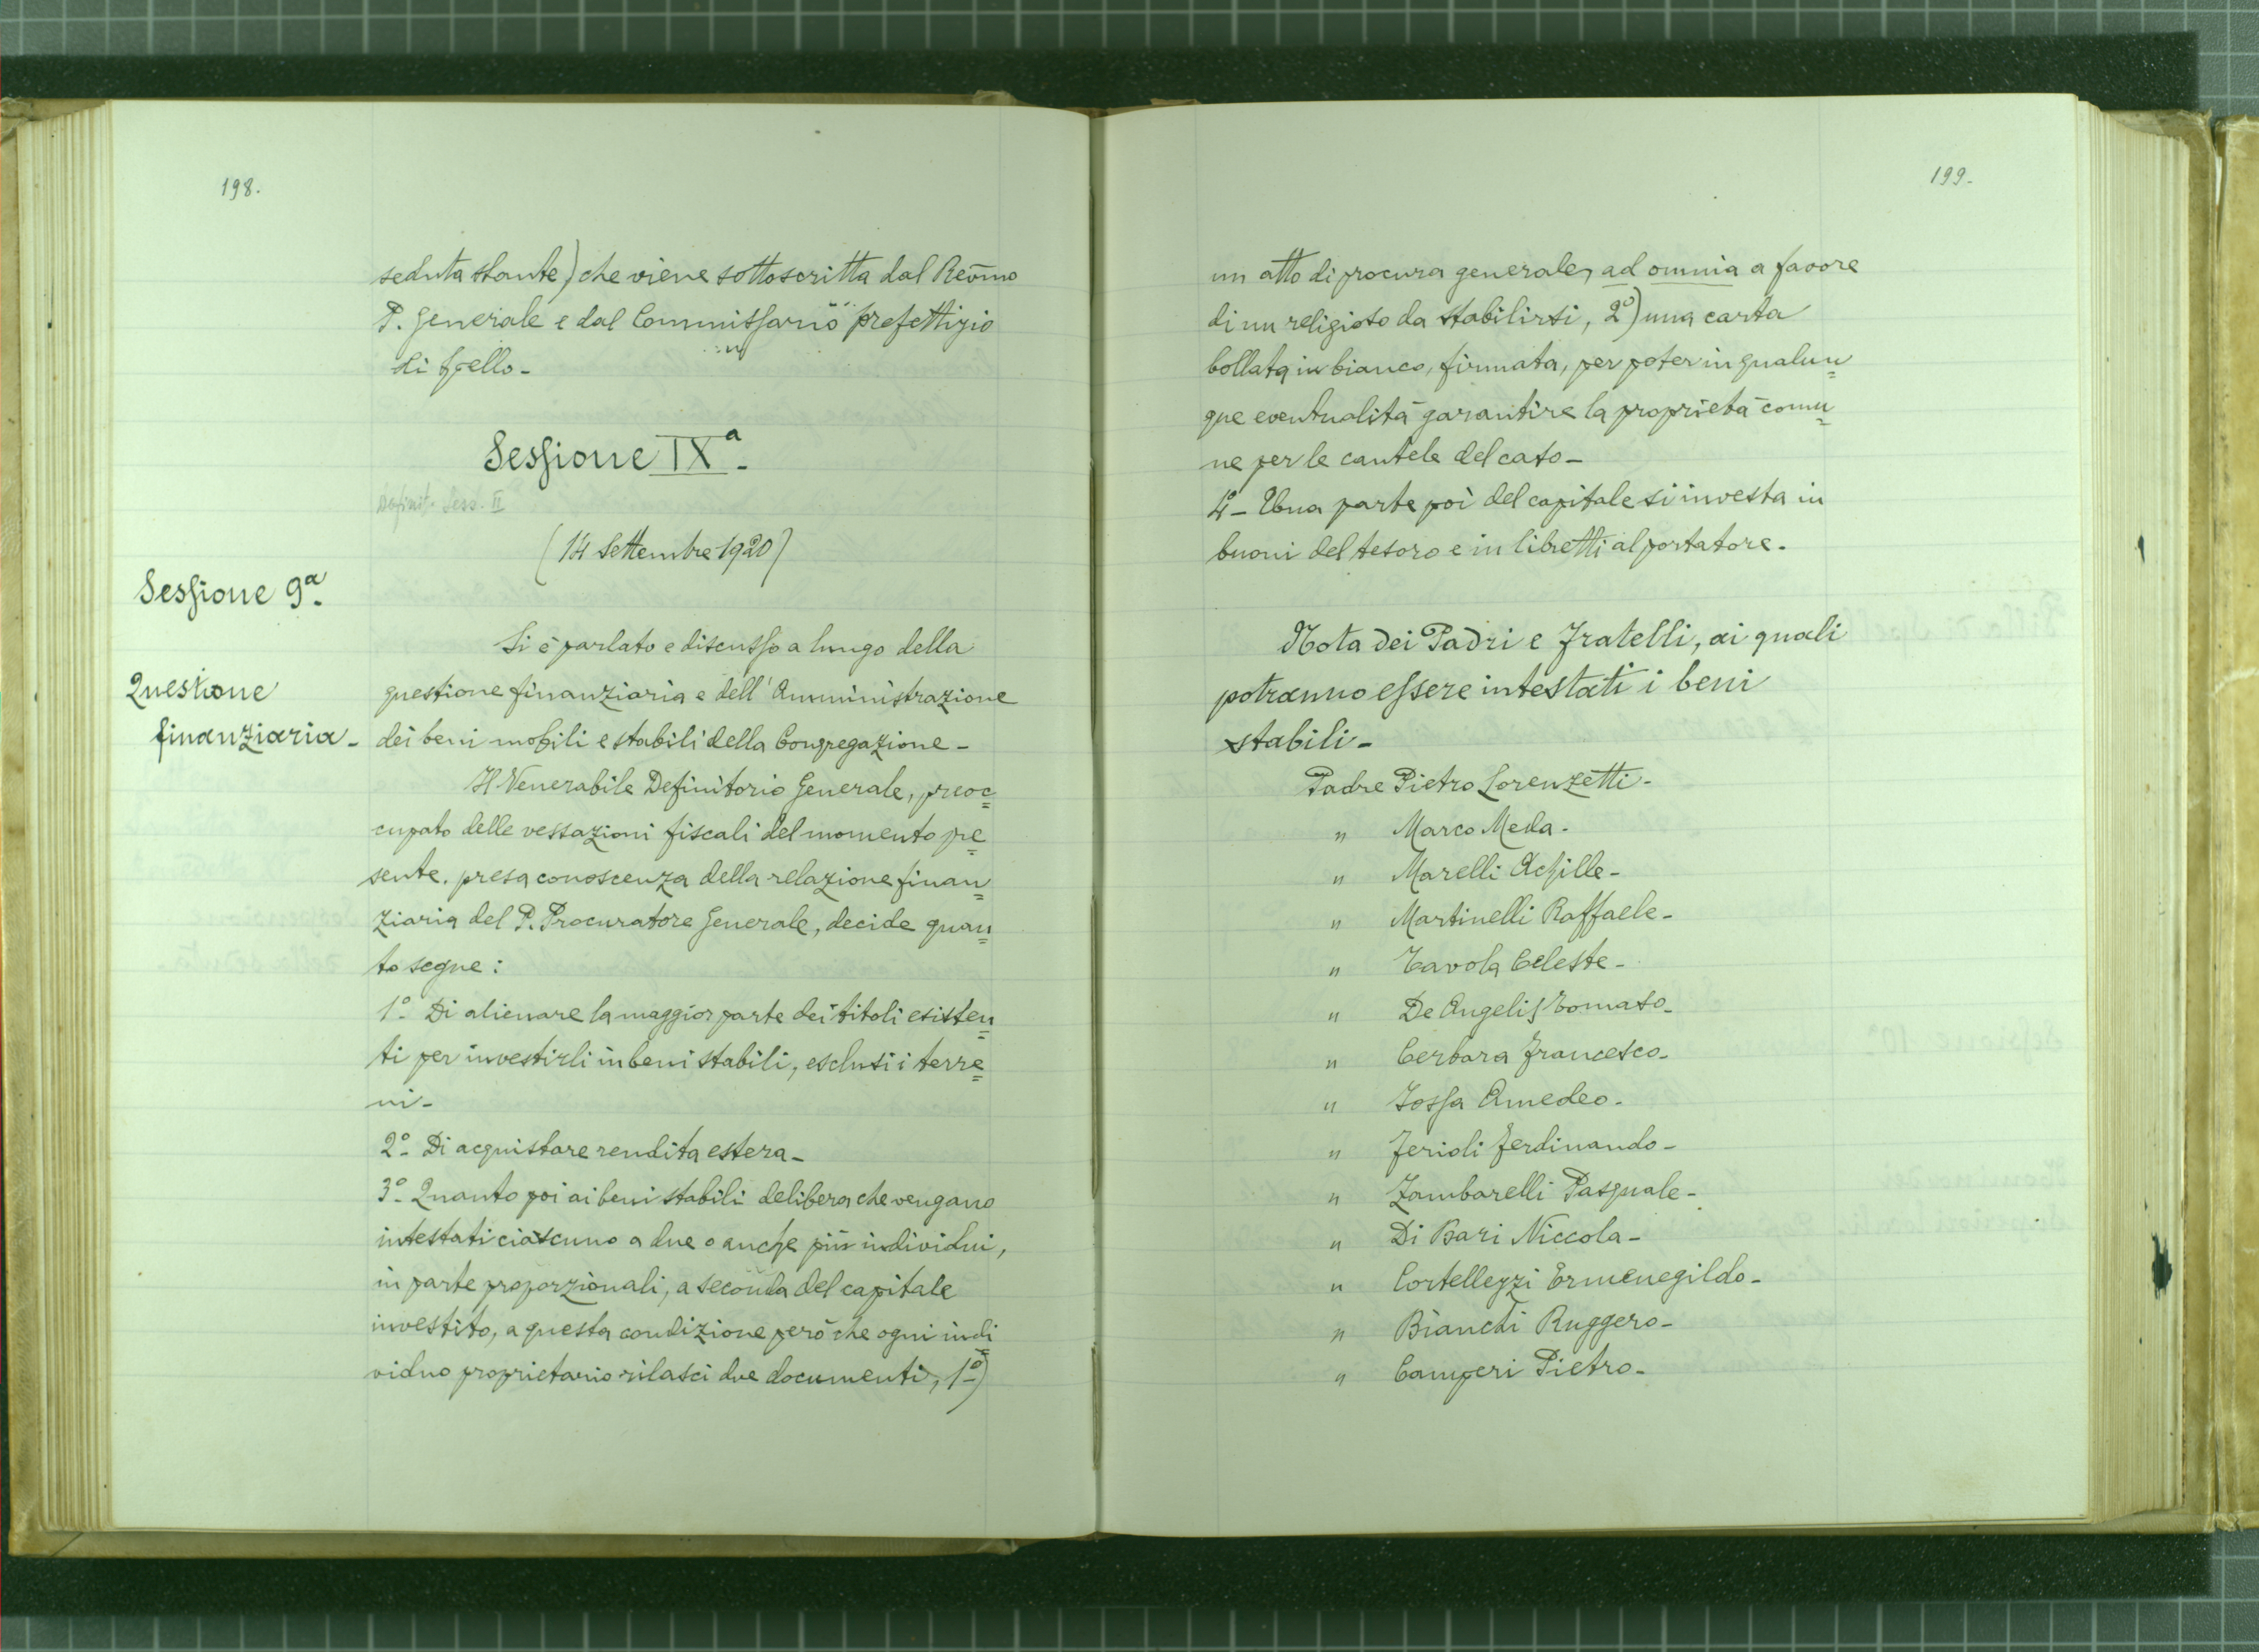 198.
seduta stante) che viene sottoscritta dal Rev̄mo
P. Generale e dal Commissario prefettizio
di Spello-
Sessione IXª-
Definit. Sess. II
(14 Settembre 1920)
Sessione 9ª-
Si è parlato e discusso a lungo della
Questione
finanziaria-
questione finanziaria e dell'Amministrazione
dei beni mobili e stabili della Congregazione-
Il Venerabile Definitorio Generale, preoc=
cupato delle vessazioni fiscali del momento pre=
sente, presa conoscenza della relazione finan=
ziaria del P. Procuratore Generale, decide quan=
to segue:
1º- Di alienare la maggior parte dei titoli esisten=
ti per investirli in beni stabili, esclusi i terre=
ni-
2º- Di acquistare rendita estera-
3º- Quanto poi ai beni stabili delibera che vengano
intestati ciascuno a due o anche più individui,
in parte proporzionali, a seconda del capitale
investito, a questa condizione però che ogni indi=
viduo proprietario rilasci due documenti, 1º)
199-
un atto di procura generale, ad omnia a favore
di un religioso da stabilirsi, 2º) una carta
bollata in bianco, firmata, per poter in qualun=
que eventualità garantire la proprietà comu=
ne per le cautele del caso-
4º- Una parte poi del capitale si investa in
buoni del tesoro e in libretti al portatore.
Nota dei Padri e Fratelli, ai quali
potranno essere intestati i beni
stabili-
Padre Pietro Lorenzetti-
" Marco Meda-
" Marelli Achille-
" Martinelli Raffaele-
" Tavola Celeste-
" De Angelis Tomaso-
" Cerbara Francesco-
" Jossa Amedeo-
" Ferioli Ferdinando-
" Zambarelli Pasquale-
" Di Bari Niccola-
" Cortellezzi Ermenegildo-
" Bianchi Ruggero-
" Camperi Pietro-